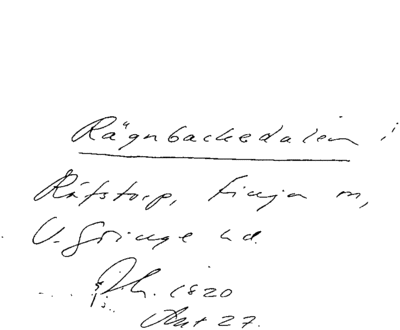 Rägnbackedalen i
Råfstorp, Finja sn,
V. Göinge hd.
Rh. 1820
Akt 27.